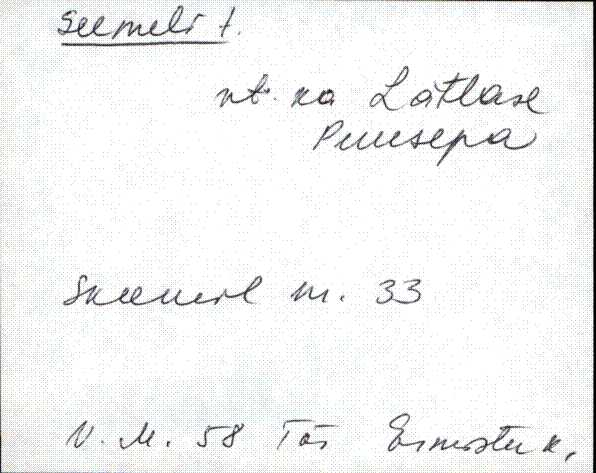 Seemeli t.
vt. ka Lätlase
Puusepa
Skeemil nr. 33
V. M. 58 Tõs Ermistu k.